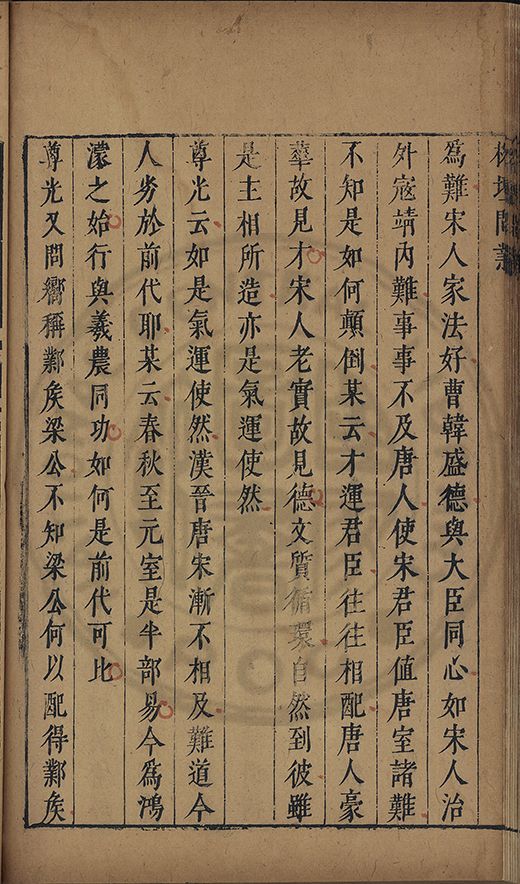 為難宋人家法好曹韓盛德與大臣同心如宋人治
外寇靖內難事事不及唐人使宋君臣值唐室諸難
不知是如何顛倒某云才運君臣往往相配唐人豪
華故見才宋人老實故見德文質循環自然到彼雖
是主相所造亦是氣運使然
尊光云如是氣運使然漢晉唐宋漸不相及難道今
人劣於前代耶某云春秋至元室是半部易今為鴻
濛之始行與羲農同功如何是前代可比
尊光又問嚮稱鄴矦梁公不知梁公何以配得鄴矦